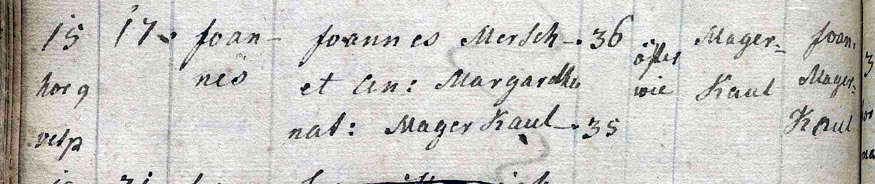 15 17. Joan- Joannes Mersch -. 36 öfter Mager- Joan.
hor 9 nes et An: Margaretha wie Kaul Mager-
vesp nat: Mager Kaul -. 35 Kaul